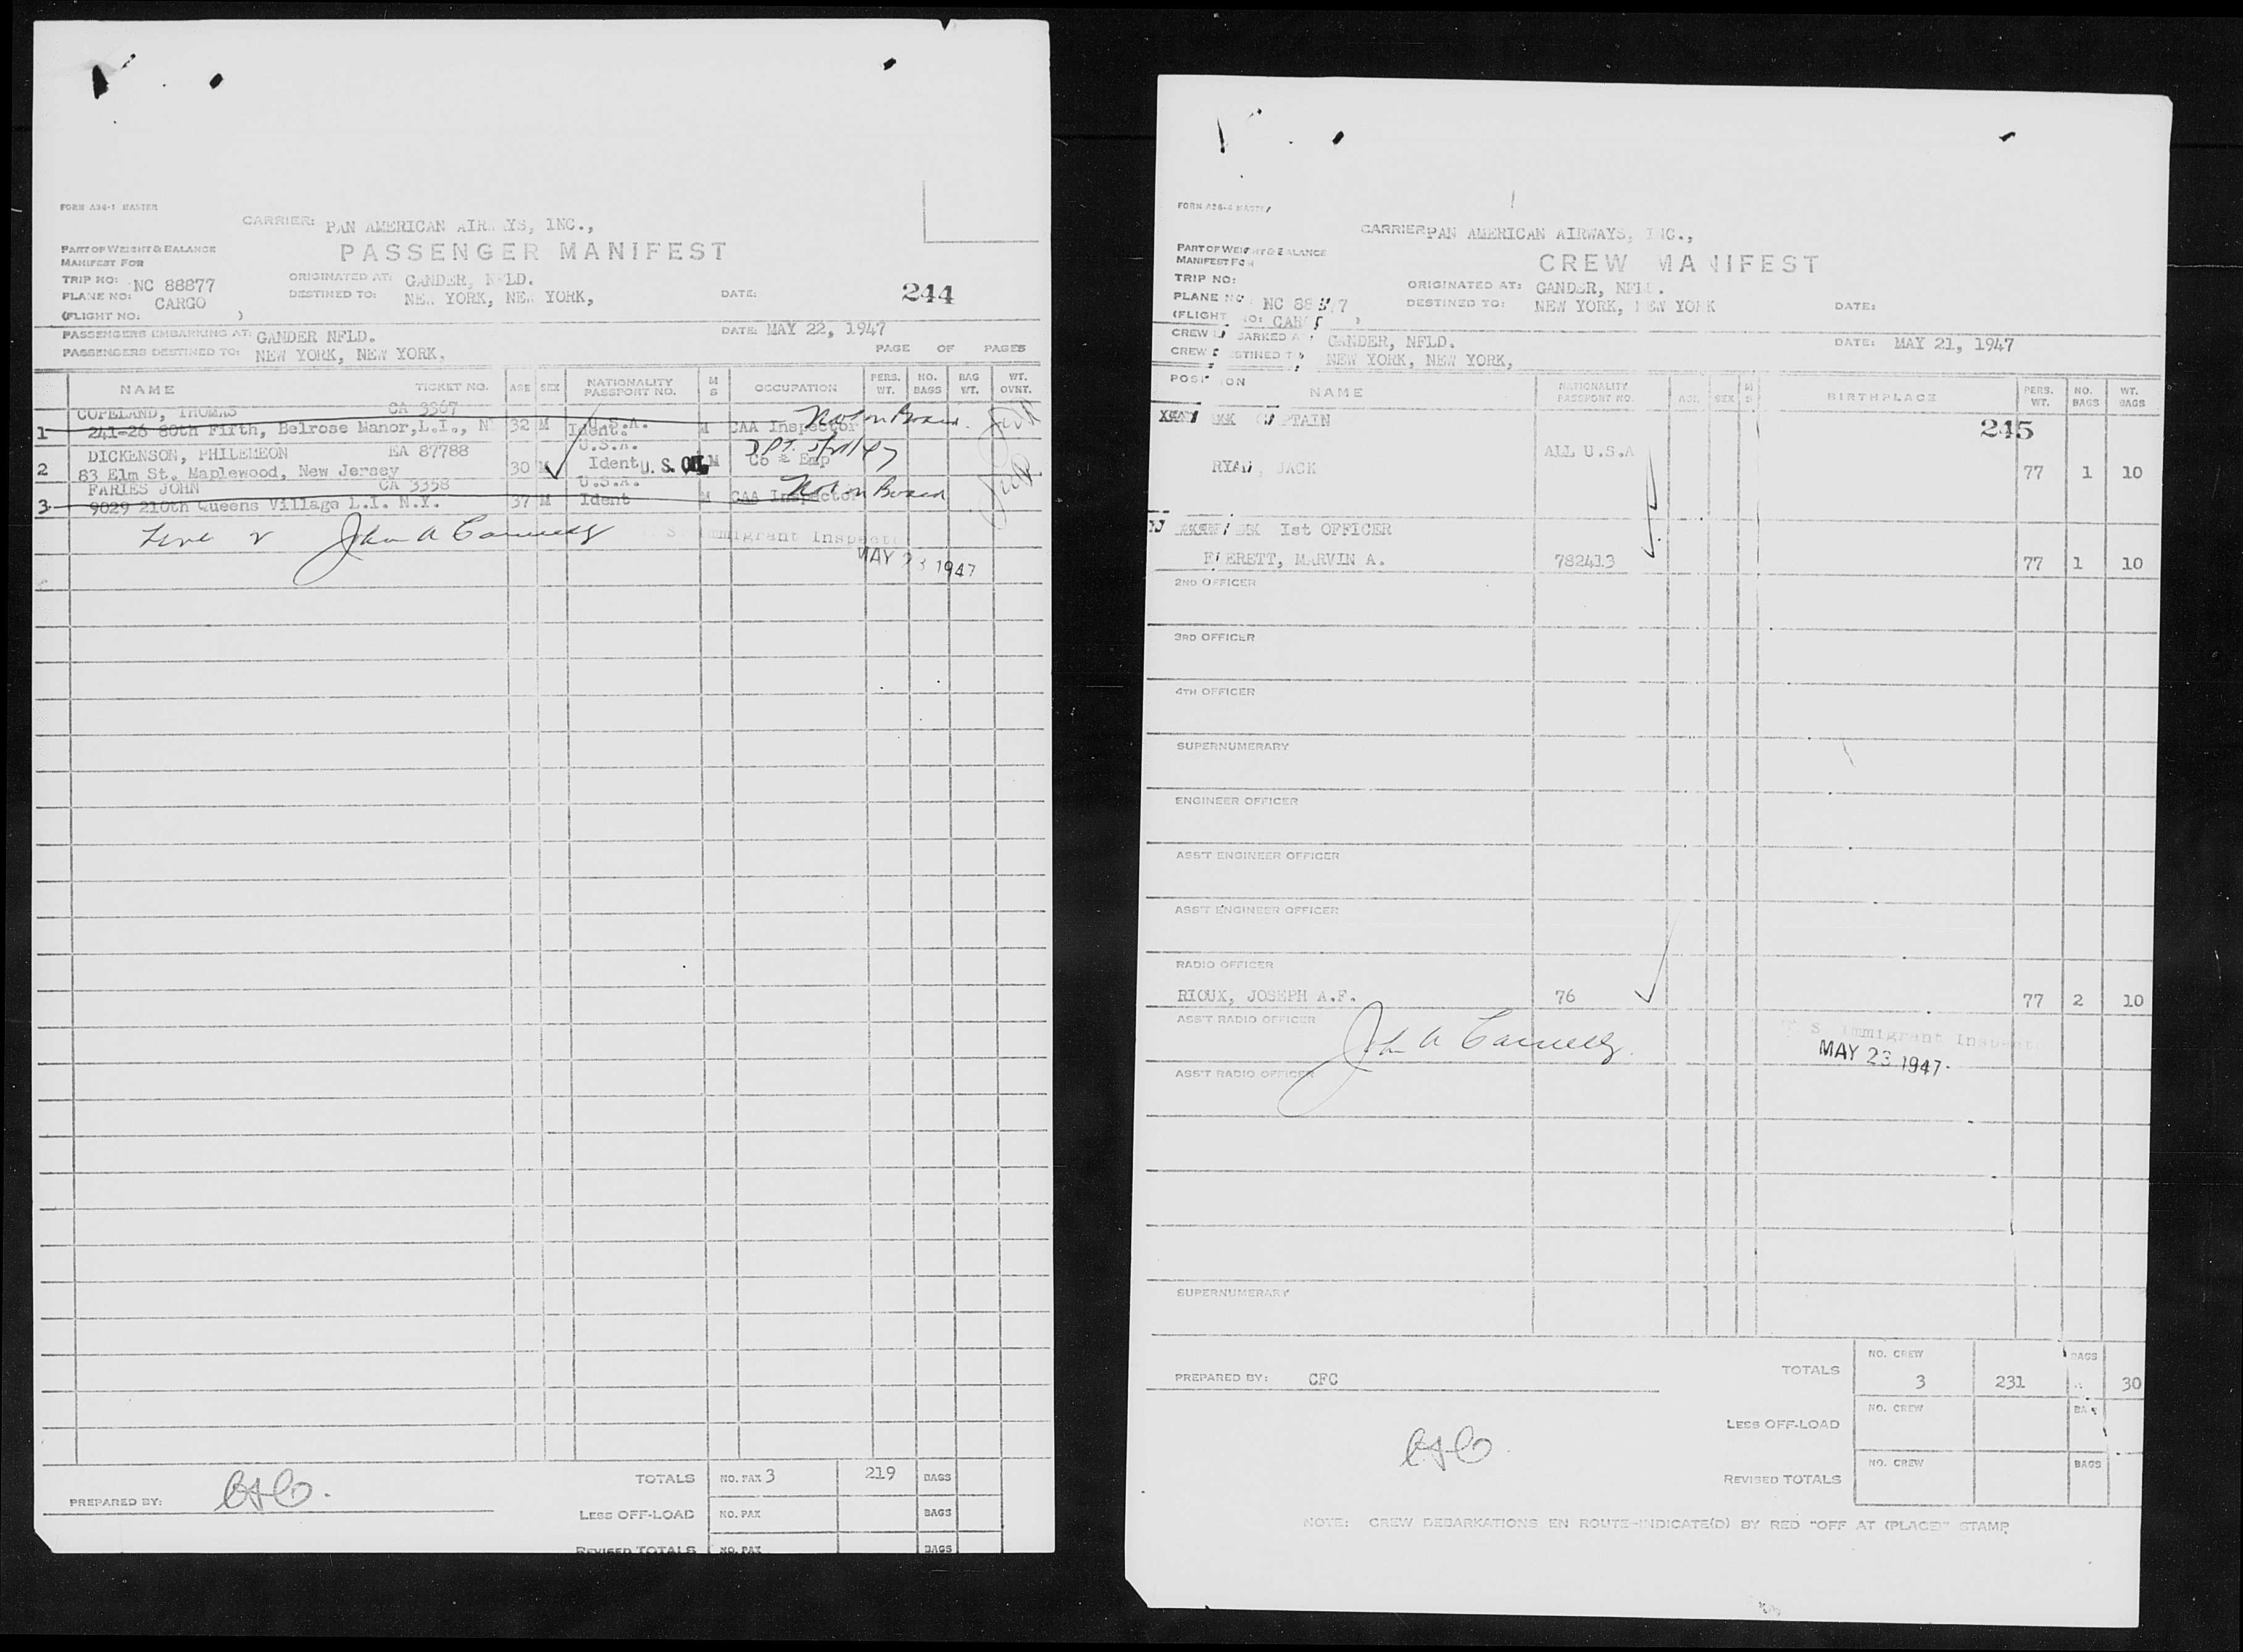 FORM A36-1 MASTER
CARRIER: PAN AMERICAN AIRWAYS, INC.,
PASSENGER MANIFEST
PART OF WEIGHT & BALANCE
MANIFEST FOR
TRIP NO: NC 88877
ORIGINATED AT: GANDER, NFLD.
PLANE NO: CARGO
DESTINED TO: NEW YORK, NEW YORK,
DATE:
244
(FLIGHT NO: )
PASSENGERS EMBARKING AT: GANDER NFLD.
DATE: MAY 22, 1947
PASSENGERS DESTINED TO: NEW YORK, NEW YORK,
PAGE OF PAGES
NAME TICKET NO. AGE SEX NATIONALITY PASSPORT NO. M S OCCUPATION PERS. WT. NO. BAGS BAG WT. WT. OVNT.
COPELAND, THOMAS CA 3367
1 241-26 80th Firth, Belrose Manor, L.I., N 32 M U.S.A. Ident. M CAA Inspector Not on Board.
DICKENSON, PHILEMEON EA 87788 U.S.A.
2 83 Elm St. Maplewood, New Jersey 30 M Ident U.S. M Co - Emp
FARIES JOHN CA 3358 U.S.A.
3 9029 210th Queens Village L.I. N.Y. 37 M Ident M CAA Inspector Not on Board
Line 2 John A
U.S. Immigrant Inspector
MAY 23 1947
TOTALS NO. PAX 3 219 BAGS
PREPARED BY:
LESS OFF-LOAD NO. PAX BAGS
REVISED TOTALS NO. PAX BAGS
FORM A36-4 MASTER
CARRIER PAN AMERICAN AIRWAYS, INC.,
CREW MANIFEST
PART OF WEIGHT & BALANCE
MANIFEST FOR
TRIP NO:
ORIGINATED AT: GANDER, NFLD.
PLANE NO: NC 88877
DESTINED TO: NEW YORK, NEW YORK
DATE:
(FLIGHT NO: CARGO )
CREW EMBARKED AT GANDER, NFLD.
DATE: MAY 21, 1947
CREW DESTINED TO NEW YORK, NEW YORK,
POSITION NAME NATIONALITY PASSPORT NO. AGE SEX M S BIRTHPLACE PERS. WT. NO. BAGS WT. BAGS
CAPTAIN
245
ALL U.S.A
RYAN, JACK 77 1 10
1st OFFICER
EVERETT, MARVIN A. 782413 77 1 10
2ND OFFICER
3RD OFFICER
4TH OFFICER
SUPERNUMERARY
ENGINEER OFFICER
ASS'T ENGINEER OFFICER
ASS'T ENGINEER OFFICER
RADIO OFFICER
RIOUX, JOSEPH A.F. 76 77 2 10
ASS'T RADIO OFFICER
John A
U.S. Immigrant Inspector
MAY 23 1947
ASS'T RADIO OFFICER
SUPERNUMERARY
TOTALS NO. CREW 3 231 BAGS 30
PREPARED BY: CFC
LESS OFF-LOAD NO. CREW BAGS
REVISED TOTALS NO. CREW BAGS
NOTE: CREW DEBARKATIONS EN ROUTE-INDICATE(D) BY RED "OFF AT (PLACE)" STAMP